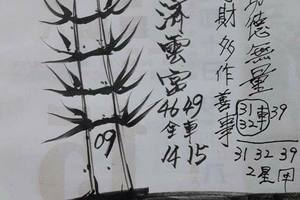 功德無量
31車39
32
31 32 39
2星
財多作善事
濟雲宮
46 49
全車
14 15
09